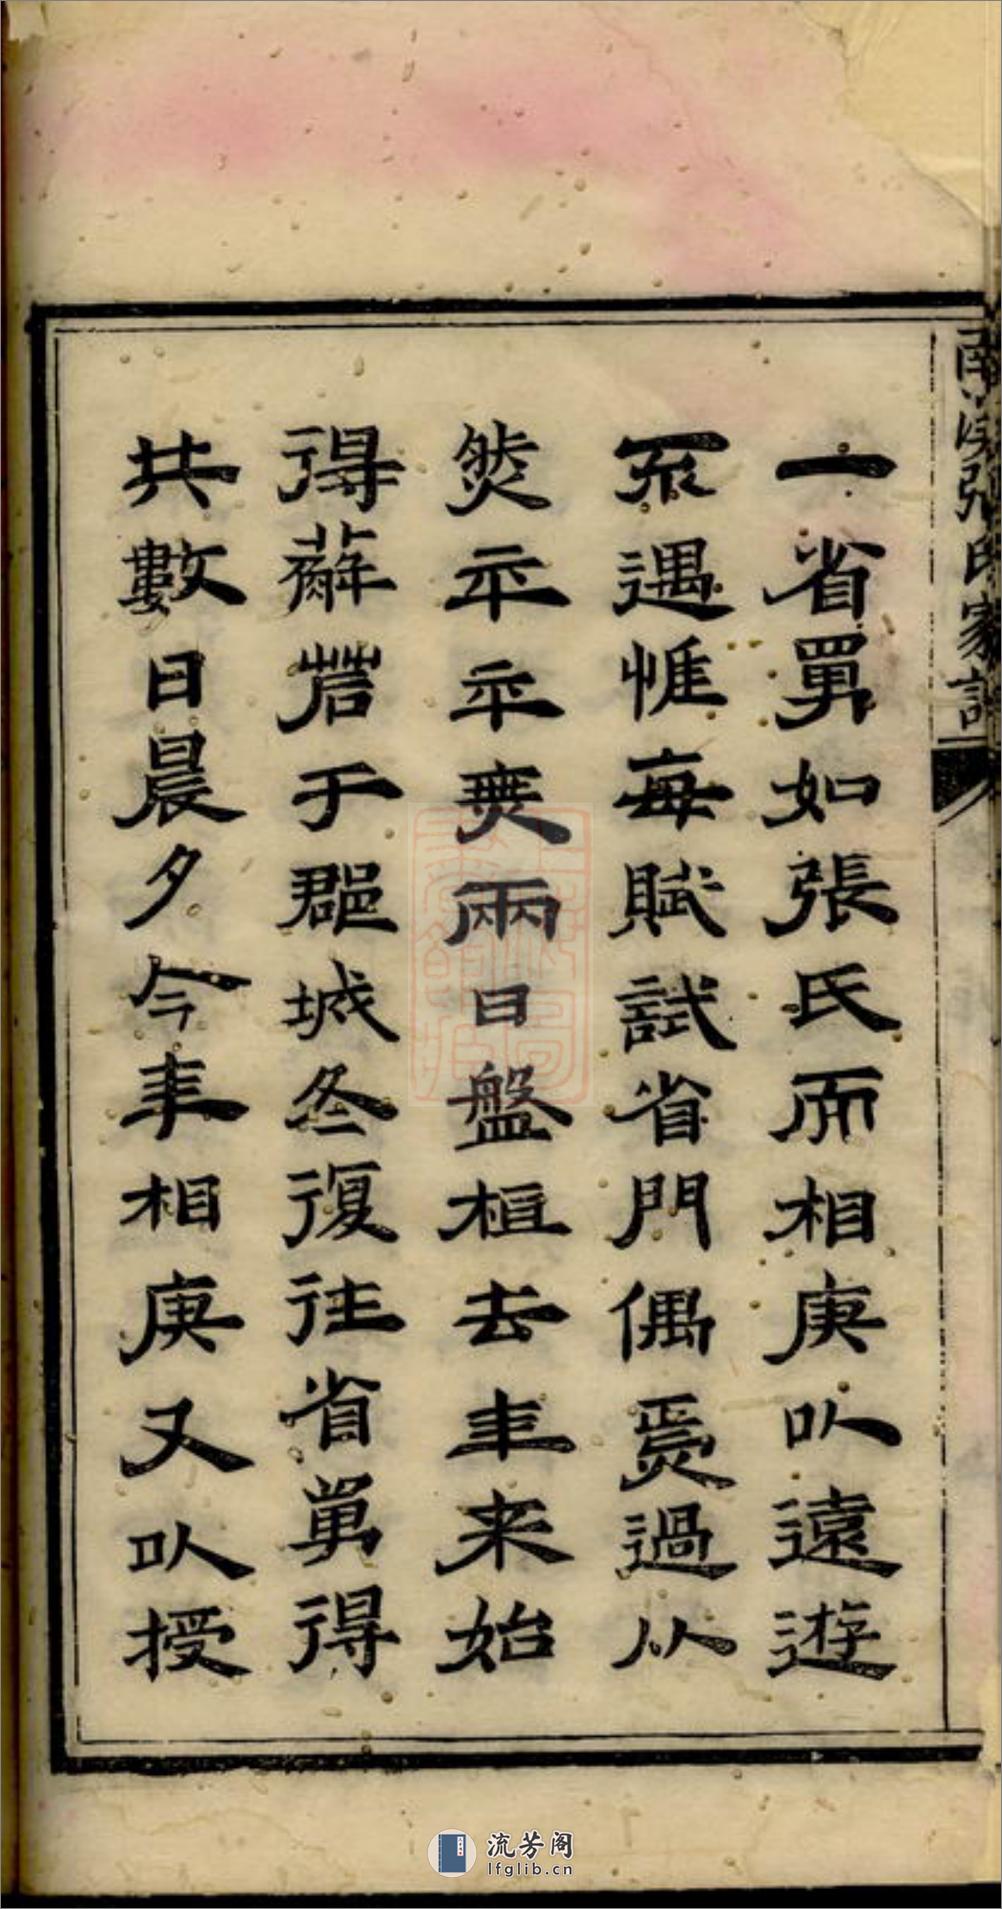 張氏家譜
一省舅如張氏而相庚以遠遊
不遇惟每賦試省門偶焉過從
然平平無兩日盤桓去年來始
得薜蘿于郡城冬復往省舅得
共數日晨夕今年相庚又以授
流芳阁
lfglib.cn